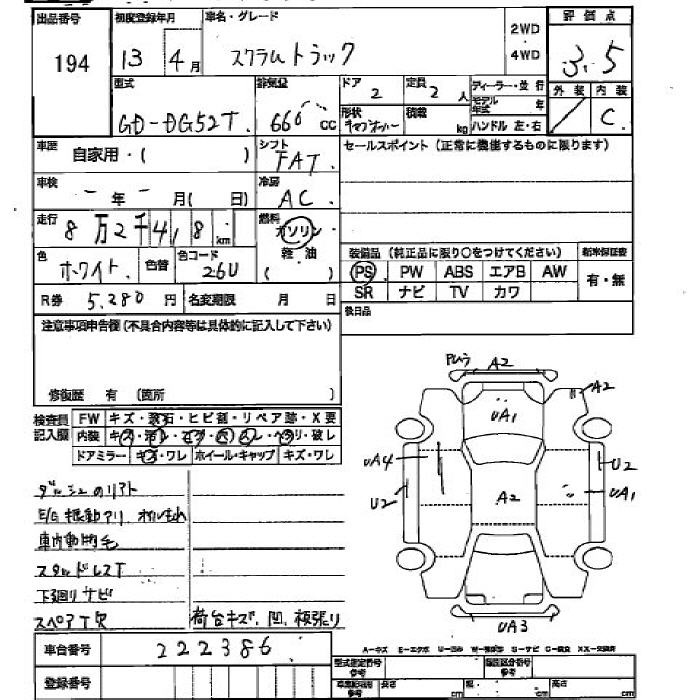 出品番号 初度登録年月 車名・グレード 2WD・4WD 評価点
194 13年 4月 スクラムトラック 3.5
型式 排気量 ドア 定員 ディーラー・並行 外装 内装
GD-DG52T. 660cc 2 2人 モデル年式 年
形状 積載 kg ハンドル 左・右 C.
車歴 自家用・( ) シフト FAT. セールスポイント (正常に機能するものに限ります)
車検 年 月( 日) 冷房 AC.
走行 8万2千4,8 km 燃料 ガソリン 軽油 ( )
色 ホワイト. 色替 色コード 26U
装備品 (純正品に限り○をつけてください) 新車保証書
PS PW ABS エアB AW 有・無
SR ナビ TV カワ
R券 5.280円 名変期限 月 日
後日品
注意事項申告欄 (不具合内容等は具体的に記入して下さい)
修復歴 有 (箇所 )
検査員記入欄 FW キズ・飛石・ヒビ割・リペア跡・X要
内装 キズ・汚レ・コゲ・穴・スレ・ヘタリ・破レ
ドアミラー キズ・ワレ ホイール・キャップ キズ・ワレ
Pレラ A2
A2
UA1
UA4
U2
U2
A2
UA1
UA3
E/G振動アリ オイルもれ
車内動物毛
スタッドレスT
下廻りサビ
スペアT欠 荷台キズ、凹、板張り
A-キズ E-エクボ U-凹み W-補修跡 S-サビ C-腐食 XX-交換済
車台番号 222386
登録番号
型式指定番号 類別区分番号
長さ cm 幅 cm 高さ cm